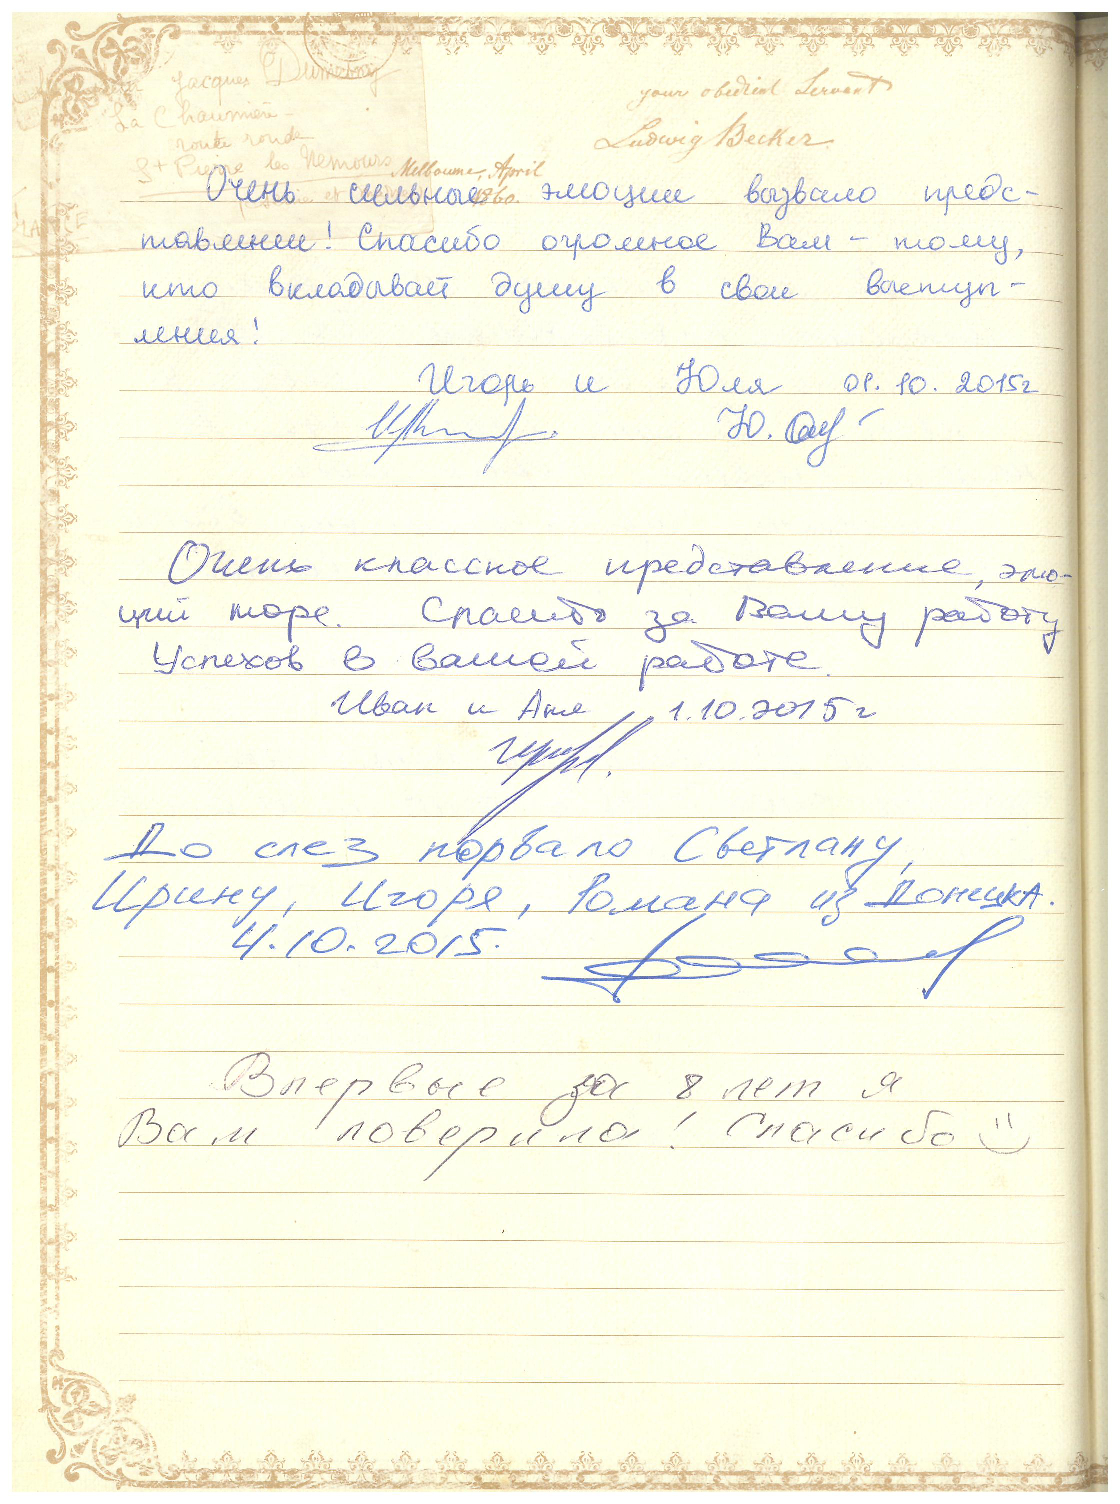 Jacques
La Chaumière
route ronde
St Pierre les Nemours
your obedient Servant
Ludwig Becker
Melbourne, April
1860.
Очень сильные эмоции вызвало предс-
тавление! Спасибо огромное Вам - тому,
кто вкладывает душу в свои выступ-
ления!
Игорь и Юля 01.10.2015г
Ю.
Очень классное представление, эмо-
ций море. Спасибо за Вашу работу
Успехов в вашей работе.
Иван и Аня 1.10.2015г
До слез порвало Светлану,
Ирину, Игоря, Романа из Донецка.
4.10.2015.
Впервые за 8 лет я
Вам поверила! Спасибо